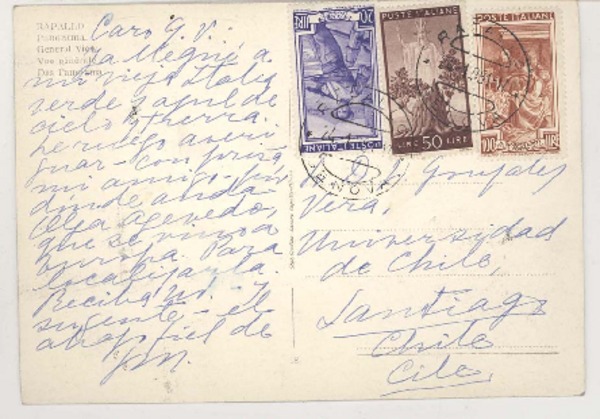 RAPALLO
PANORAMA
General View
Vue générale
Das Panorama
Caro G. V.:
Ya llegué a
mi vieja Italia
verde y azul de
cielo y tierra.
Le ruego averi
guar - con prisa
mi amigo - por
dónde anda
Olga Acevedo,
que se vino a
Europa. Para
localizarla.
Reciba
urgente - el
abrazo fiel de
GM.
POSTE ITALIANE
20 LIRE
POSTE ITALIANE
LIRE 50 LIRE
POSTE ITALIANE
100 LIRE
GENOVA
González
Vera,
Universidad
de Chile,
Santiago
Chile
Cile,